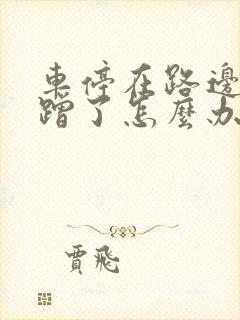 車停在路邊
蹭了怎麼办
賈飛